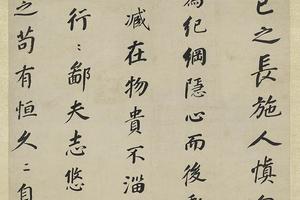 己之長施人慎
為紀綱隱心而後
臧在物貴不淄
行〻鄙夫志悠
之苟有恒久〻自